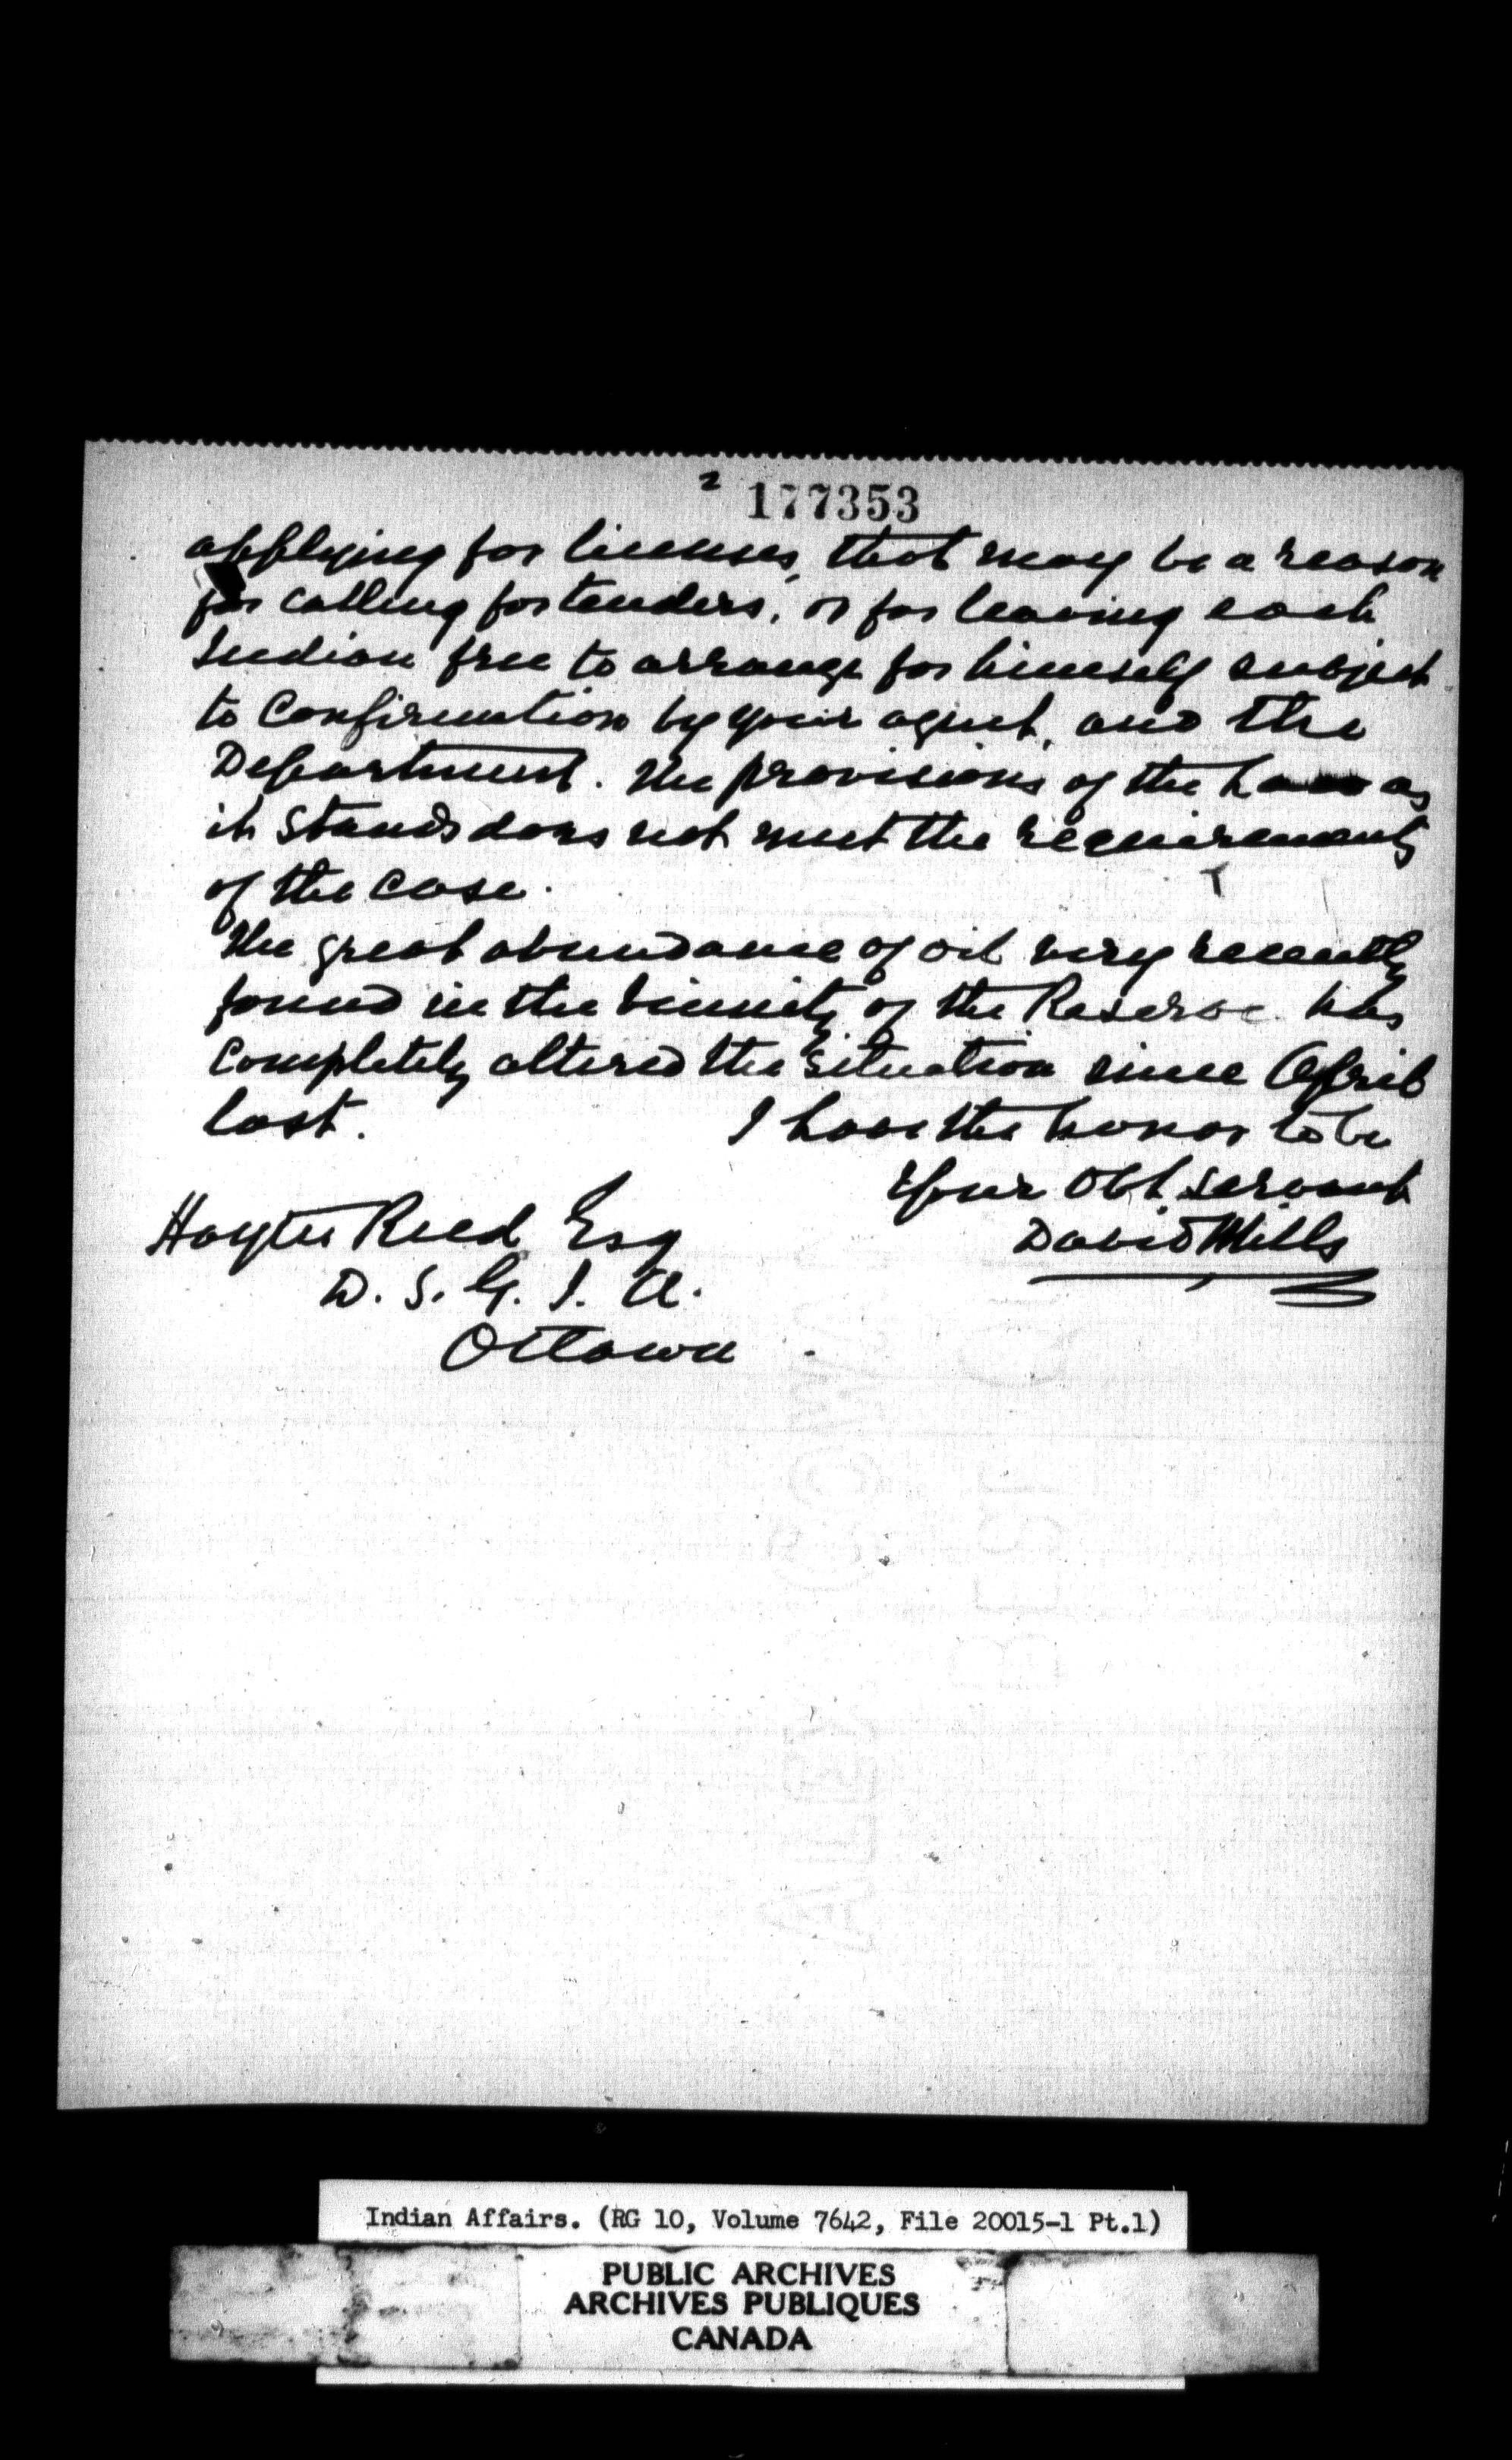 2 177353
applying for licenses, that may be a reason
for calling for tenders, or for leaving each
Indian free to arrange for himself subject
to Confirmation by your agent, and the
Department. The provisions of the Law as
it stands does not meet the requirements
of the case.
The great abundance of oil very recently
found in the vicinity of the Reserve has
completely altered the situation since April
last. I have the honor to be
Your Obt servant
David Mills
Hayter Reed Esq
D. S. G. I. A.
Ottawa
Indian Affairs. (RG 10, Volume 7642, File 20015-1 Pt.1)
PUBLIC ARCHIVES
ARCHIVES PUBLIQUES
CANADA